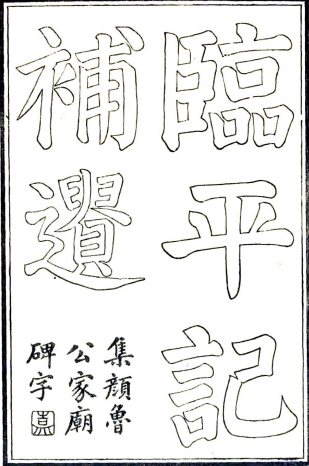 臨平記
補遺
集顔魯
公家廟
碑字